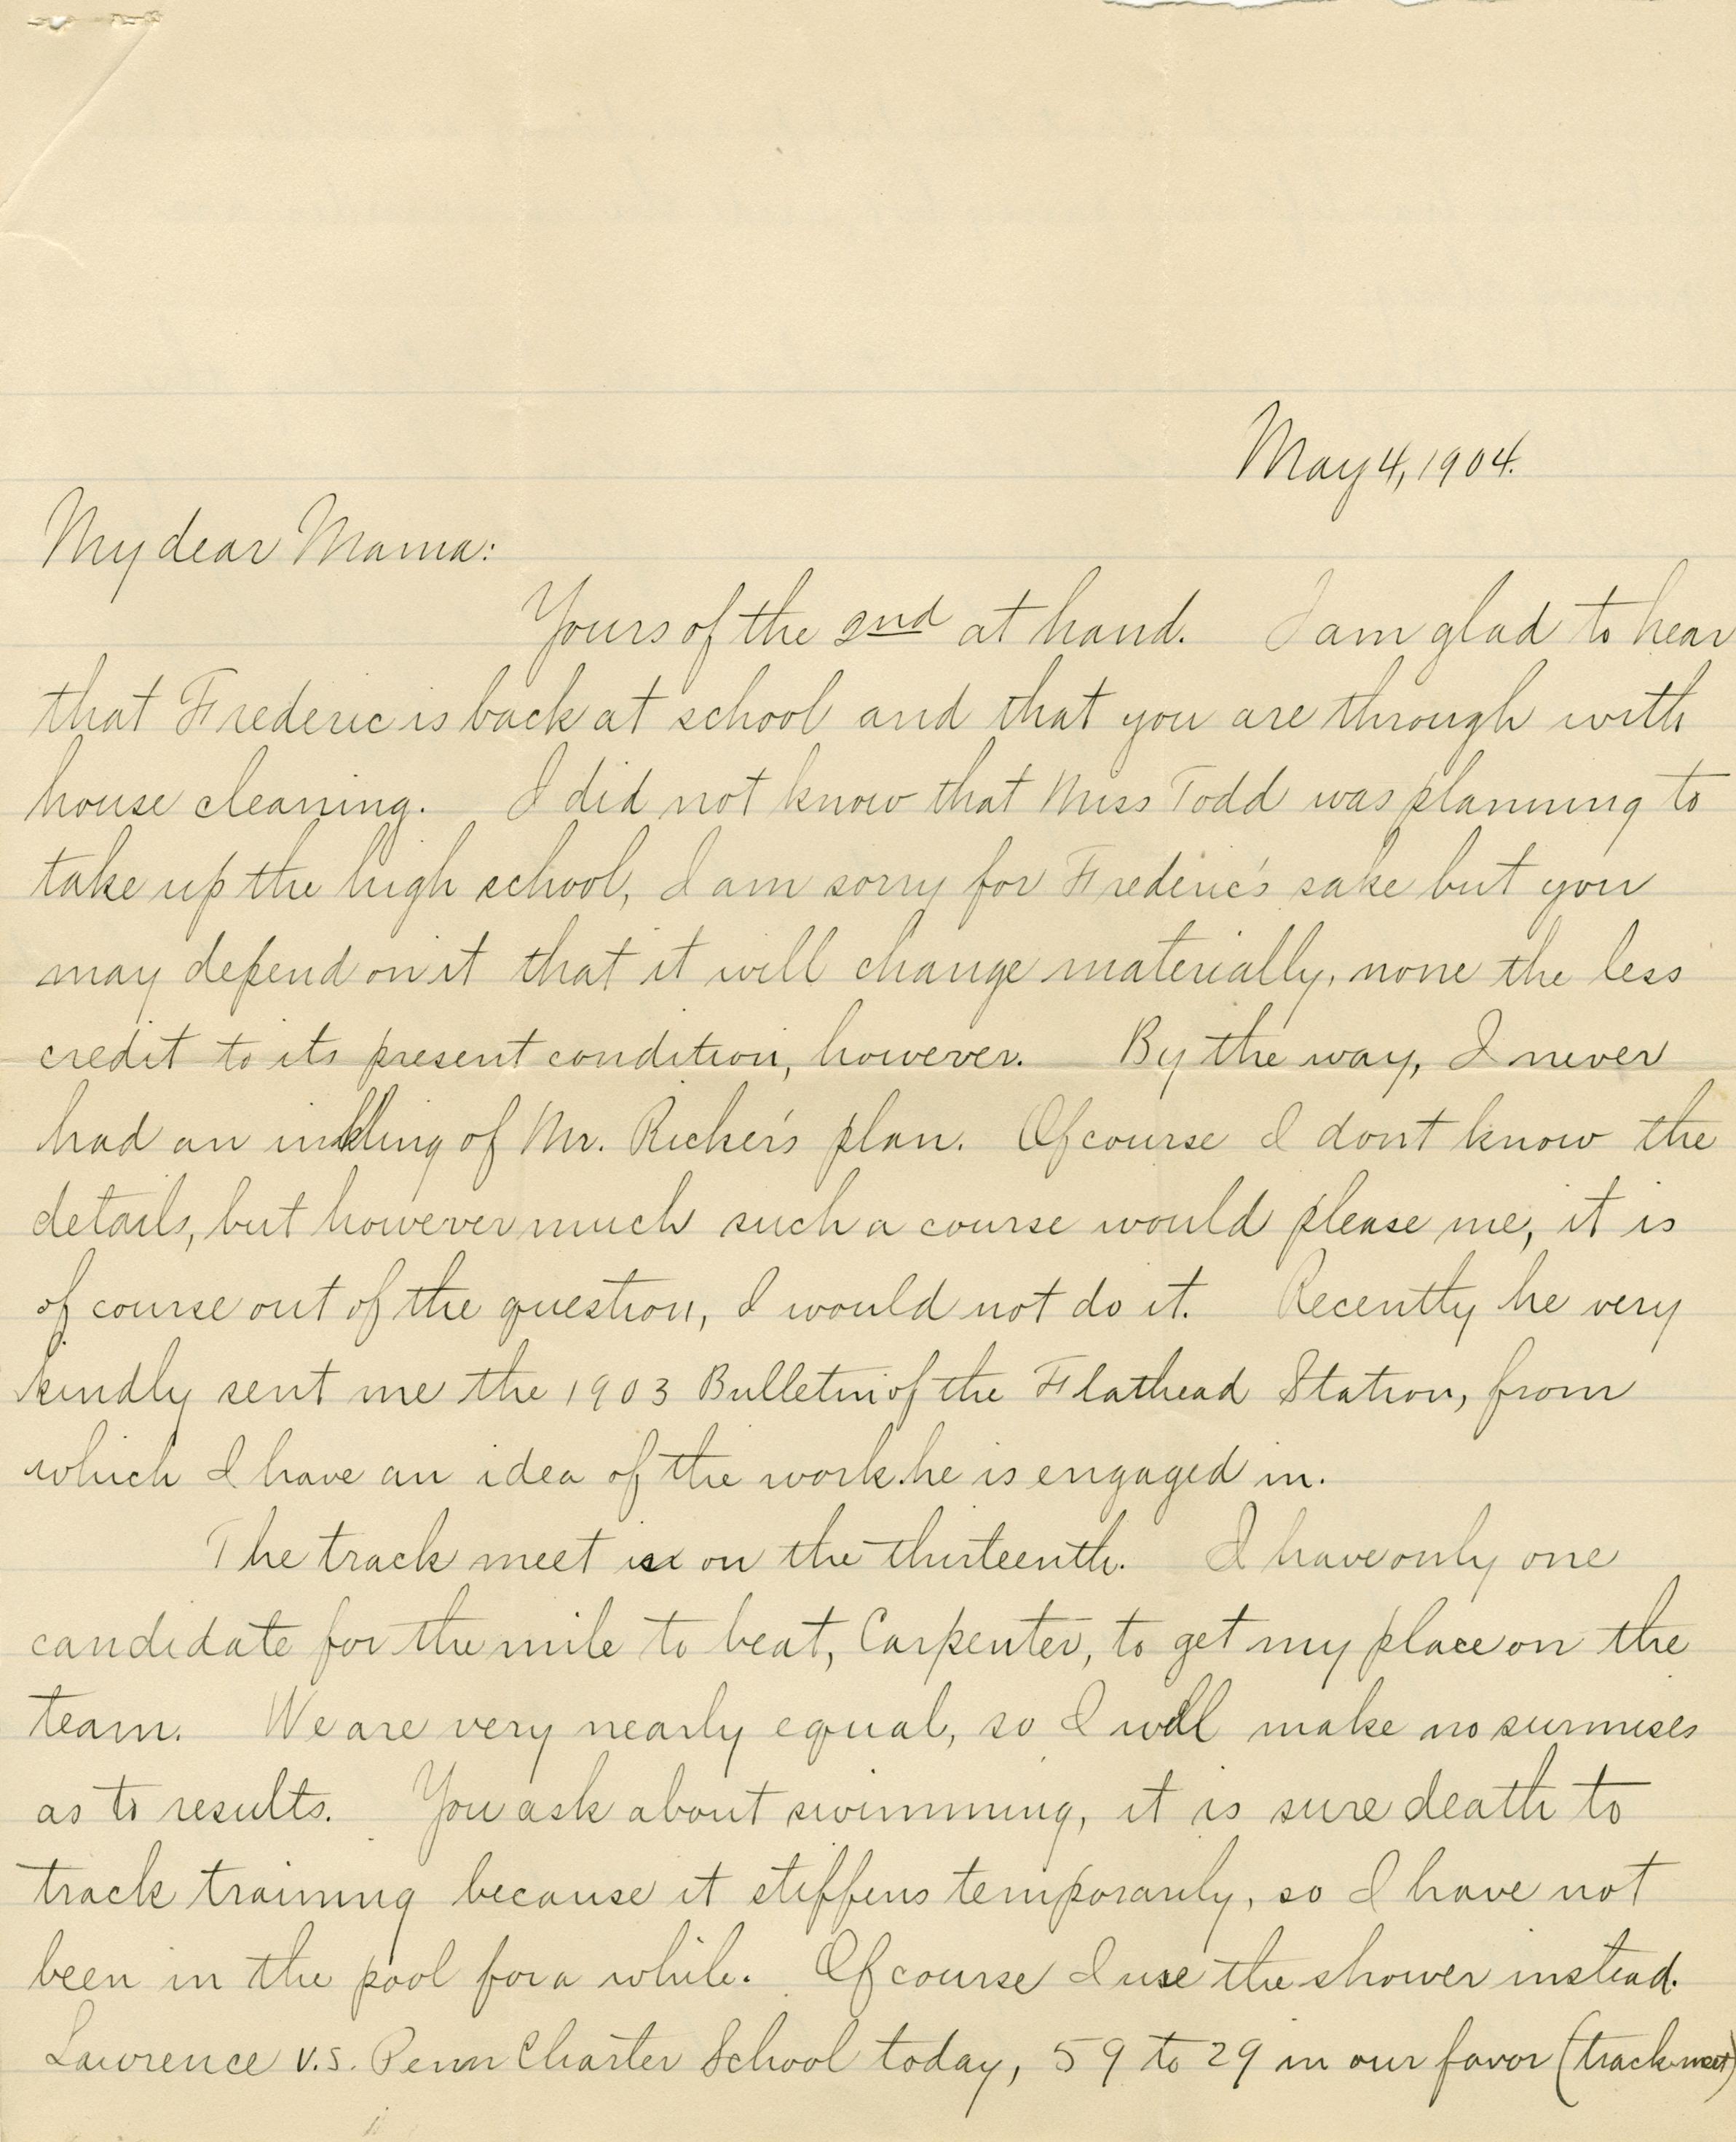 May 4, 1904.
My dear Mama:
Yours of the 2nd at hand. I am glad to hear
that Frederic is back at school and that you are through with
house cleaning. I did not know that Miss Todd was planning to
take up the high school, I am sorry for Frederic's sake but you
may depend on it that it will change materially, none the less
credit to its present condition, however. By the way, I never
had an inkling of Mr. Ricker's plan. Of course I don't know the
details, but however much such a course would please me, it is
of course out of the question, I would not do it. Recently he very
kindly sent me the 1903 Bulletin of the Flathead Station, from
which I have an idea of the work he is engaged in.
The track meet is on the thirteenth. I have only one
candidate for the mile to beat, Carpenter, to get my place on the
team. We are very nearly equal, so I will make no surmises
as to results. You ask about swimming, it is sure death to
track training because it stiffens temporarily, so I have not
been in the pool for a while. Of course I use the shower instead.
Lawrence v.s. Penn Charter School today, 59 to 29 in our favor (track meet)